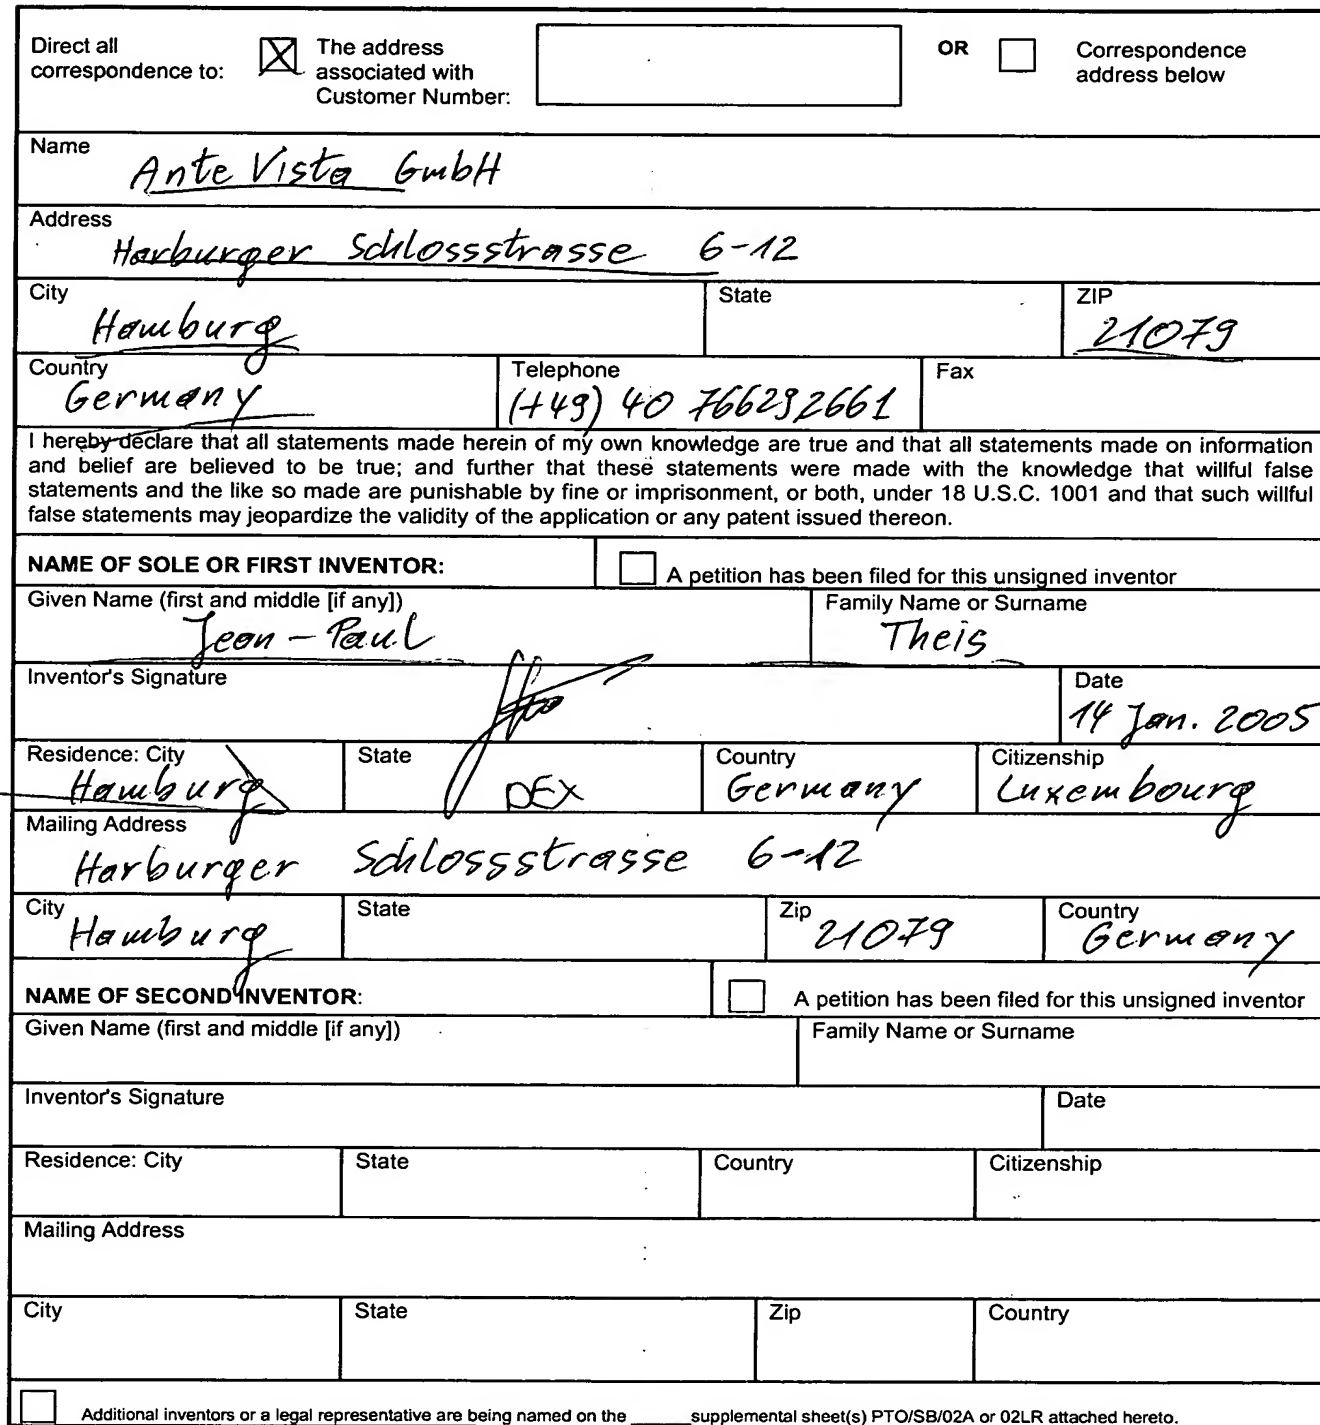 Direct all correspondence to: The address associated with Customer Number: OR Correspondence address below
Name
Ante Vista GmbH
Address
Harburger Schlossstrasse 6-12
City State ZIP
Hamburg 21079
Country Telephone Fax
Germany (+49) 40 766292661
I hereby declare that all statements made herein of my own knowledge are true and that all statements made on information
and belief are believed to be true; and further that these statements were made with the knowledge that willful false
statements and the like so made are punishable by fine or imprisonment, or both, under 18 U.S.C. 1001 and that such willful
false statements may jeopardize the validity of the application or any patent issued thereon.
NAME OF SOLE OR FIRST INVENTOR: A petition has been filed for this unsigned inventor
Given Name (first and middle [if any]) Family Name or Surname
Jean-Paul Theis
Inventor's Signature Date
14 Jan. 2005
Residence: City State Country Citizenship
Hamburg DEX Germany Luxembourg
Mailing Address
Harburger Schlossstrasse 6-12
City State Zip Country
Hamburg 21079 Germany
NAME OF SECOND INVENTOR: A petition has been filed for this unsigned inventor
Given Name (first and middle [if any]) Family Name or Surname
Inventor's Signature Date
Residence: City State Country Citizenship
Mailing Address
City State Zip Country
Additional inventors or a legal representative are being named on the ______supplemental sheet(s) PTO/SB/02A or 02LR attached hereto.